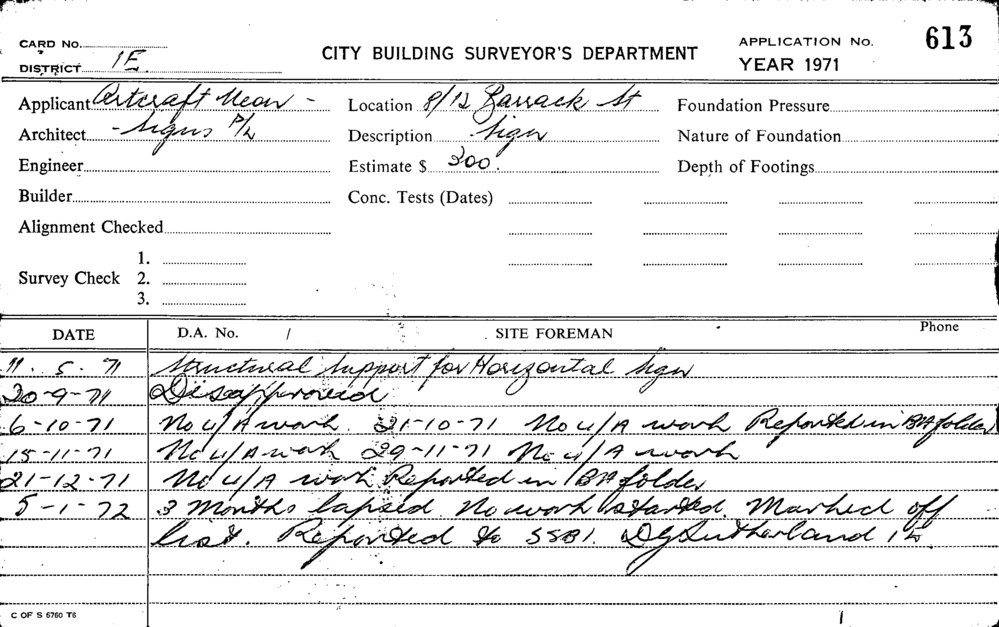 CARD No.
DISTRICT 1E
CITY BUILDING SURVEYOR'S DEPARTMENT
APPLICATION No. 613
YEAR 1971
Applicant Artcraft Neon -
Architect - Signs P/L
Engineer
Builder
Alignment Checked
Survey Check 1.
2.
3.
Location 8/12 Barrack St
Description Sign
Estimate $ 300.
Conc. Tests (Dates)
Foundation Pressure
Nature of Foundation
Depth of Footings
DATE D.A. No. / SITE FOREMAN Phone
11. 5. 71 Structural Support for Horizontal Sign
30-9-71 Disapproved
6-10-71 No u/A work. 21-10-71 No u/A work Reported in BA folder
15-11-71 No u/A work 29-11-71 No u/A work
21-12-71 No u/A work Reported in BA folder
5-1-72 3 Months lapsed. No work started. Marked off
list. Reported to SSBI. DG Sutherland
C OF S 6760 T6